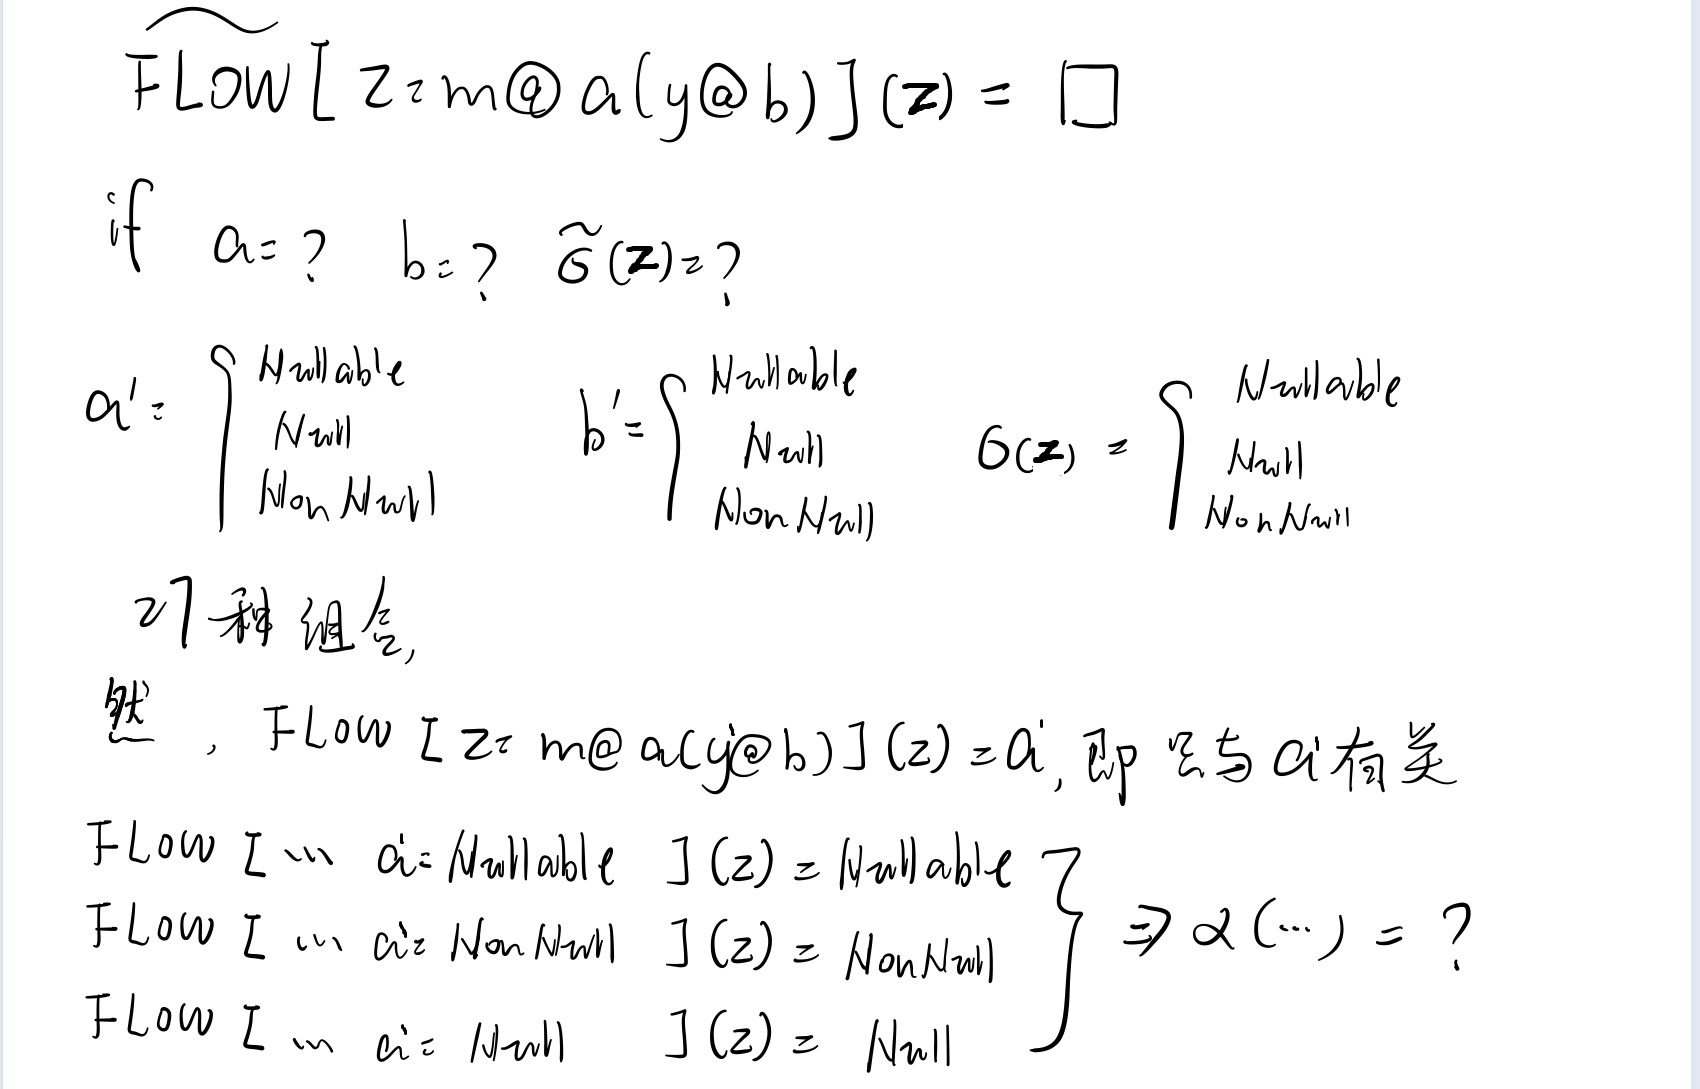 F̃LOW[z=m@a(y@b)](z) = □
if a=? b=? σ̃(z)=?
a'= { Nullable Null NonNull b'= { Nullable Null NonNull σ(z) = { Nullable Null NonNull
27种组合,
然, FLOW[z=m@a(y@b)](z)=a', 即只与a'有关
FLOW[... a'=Nullable ](z)=Nullable
FLOW[... a'=NonNull ](z)=NonNull } ⇒ α(...) = ?
FLOW[... a'=Null ](z)= Null